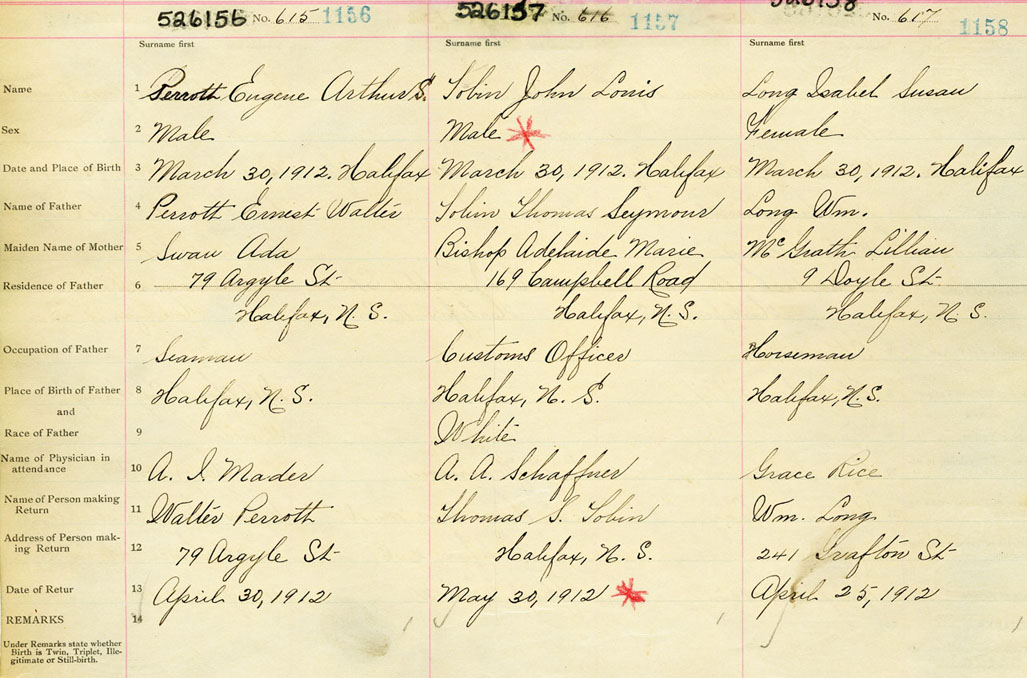 526156 No. 615 1156 526157 No. 616 1157 No. 617 1158
Surname first Surname first Surname first
Name 1 Perroth Eugene Arthur S. Tobin John Louis Long Isabel Susan
Sex 2 Male Male Female
Date and Place of Birth 3 March 30, 1912. Halifax March 30, 1912. Halifax March 30, 1912. Halifax
Name of Father 4 Perroth Ernest Walter Tobin Thomas Seymour Long Wm.
Maiden Name of Mother 5 Swan Ada Bishop Adelaide Marie McGrath Lillian
Residence of Father 6 79 Argyle St 169 Campbell Road 9 Doyle St
Halifax, N. S. Halifax, N. S. Halifax, N. S.
Occupation of Father 7 Seaman Customs Officer Horseman
Place of Birth of Father 8 Halifax, N. S. Halifax, N. S. Halifax, N.S.
and
Race of Father 9 White
Name of Physician in
attendance 10 A. I. Mader A. A. Schaffner Grace Rice
Name of Person making
Return 11 Walter Perroth Thomas S. Tobin Wm. Long
Address of Person mak-
ing Return 12 79 Argyle St Halifax, N. S. 241 Grafton St
Date of Retur 13 April 30, 1912 May 30, 1912 April 25, 1912
REMARKS 14
Under Remarks state whether
Birth is Twin, Triplet, Ille-
gitimate or Still-birth.